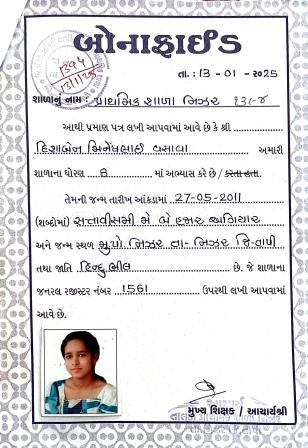 બોનાફાઈડ
૧૩૧૫
૧૩/૧/૨૫
તા. : 13 - 01 - 2025
શાળાનું નામ : પ્રાથમિક શાળા નિઝર
આથી પ્રમાણ પત્ર લખી આપવામાં આવે છે કે શ્રી
દિશાબેન દિનેષભાઈ વસાવા અમારી
શાળાના ધોરણ 8 માં અભ્યાસ કરે છે / કરતા હતા.
તેમની જન્મ તારીખ આંકડામાં 27-05-2011
(શબ્દોમાં) સત્તાવીસમી મે બે હજાર અગિયાર
અને જન્મ સ્થળ મુ.પો નિઝર તા- નિઝર જિ-તાપી
તથા જાતિ હિન્દુ ભીલ છે. જે શાળાના
જનરલ રજીસ્ટર નંબર 1561 ઉપરથી લખી આપવામાં
આવે છે.
મુખ્ય શિક્ષક / આચાર્યશ્રી